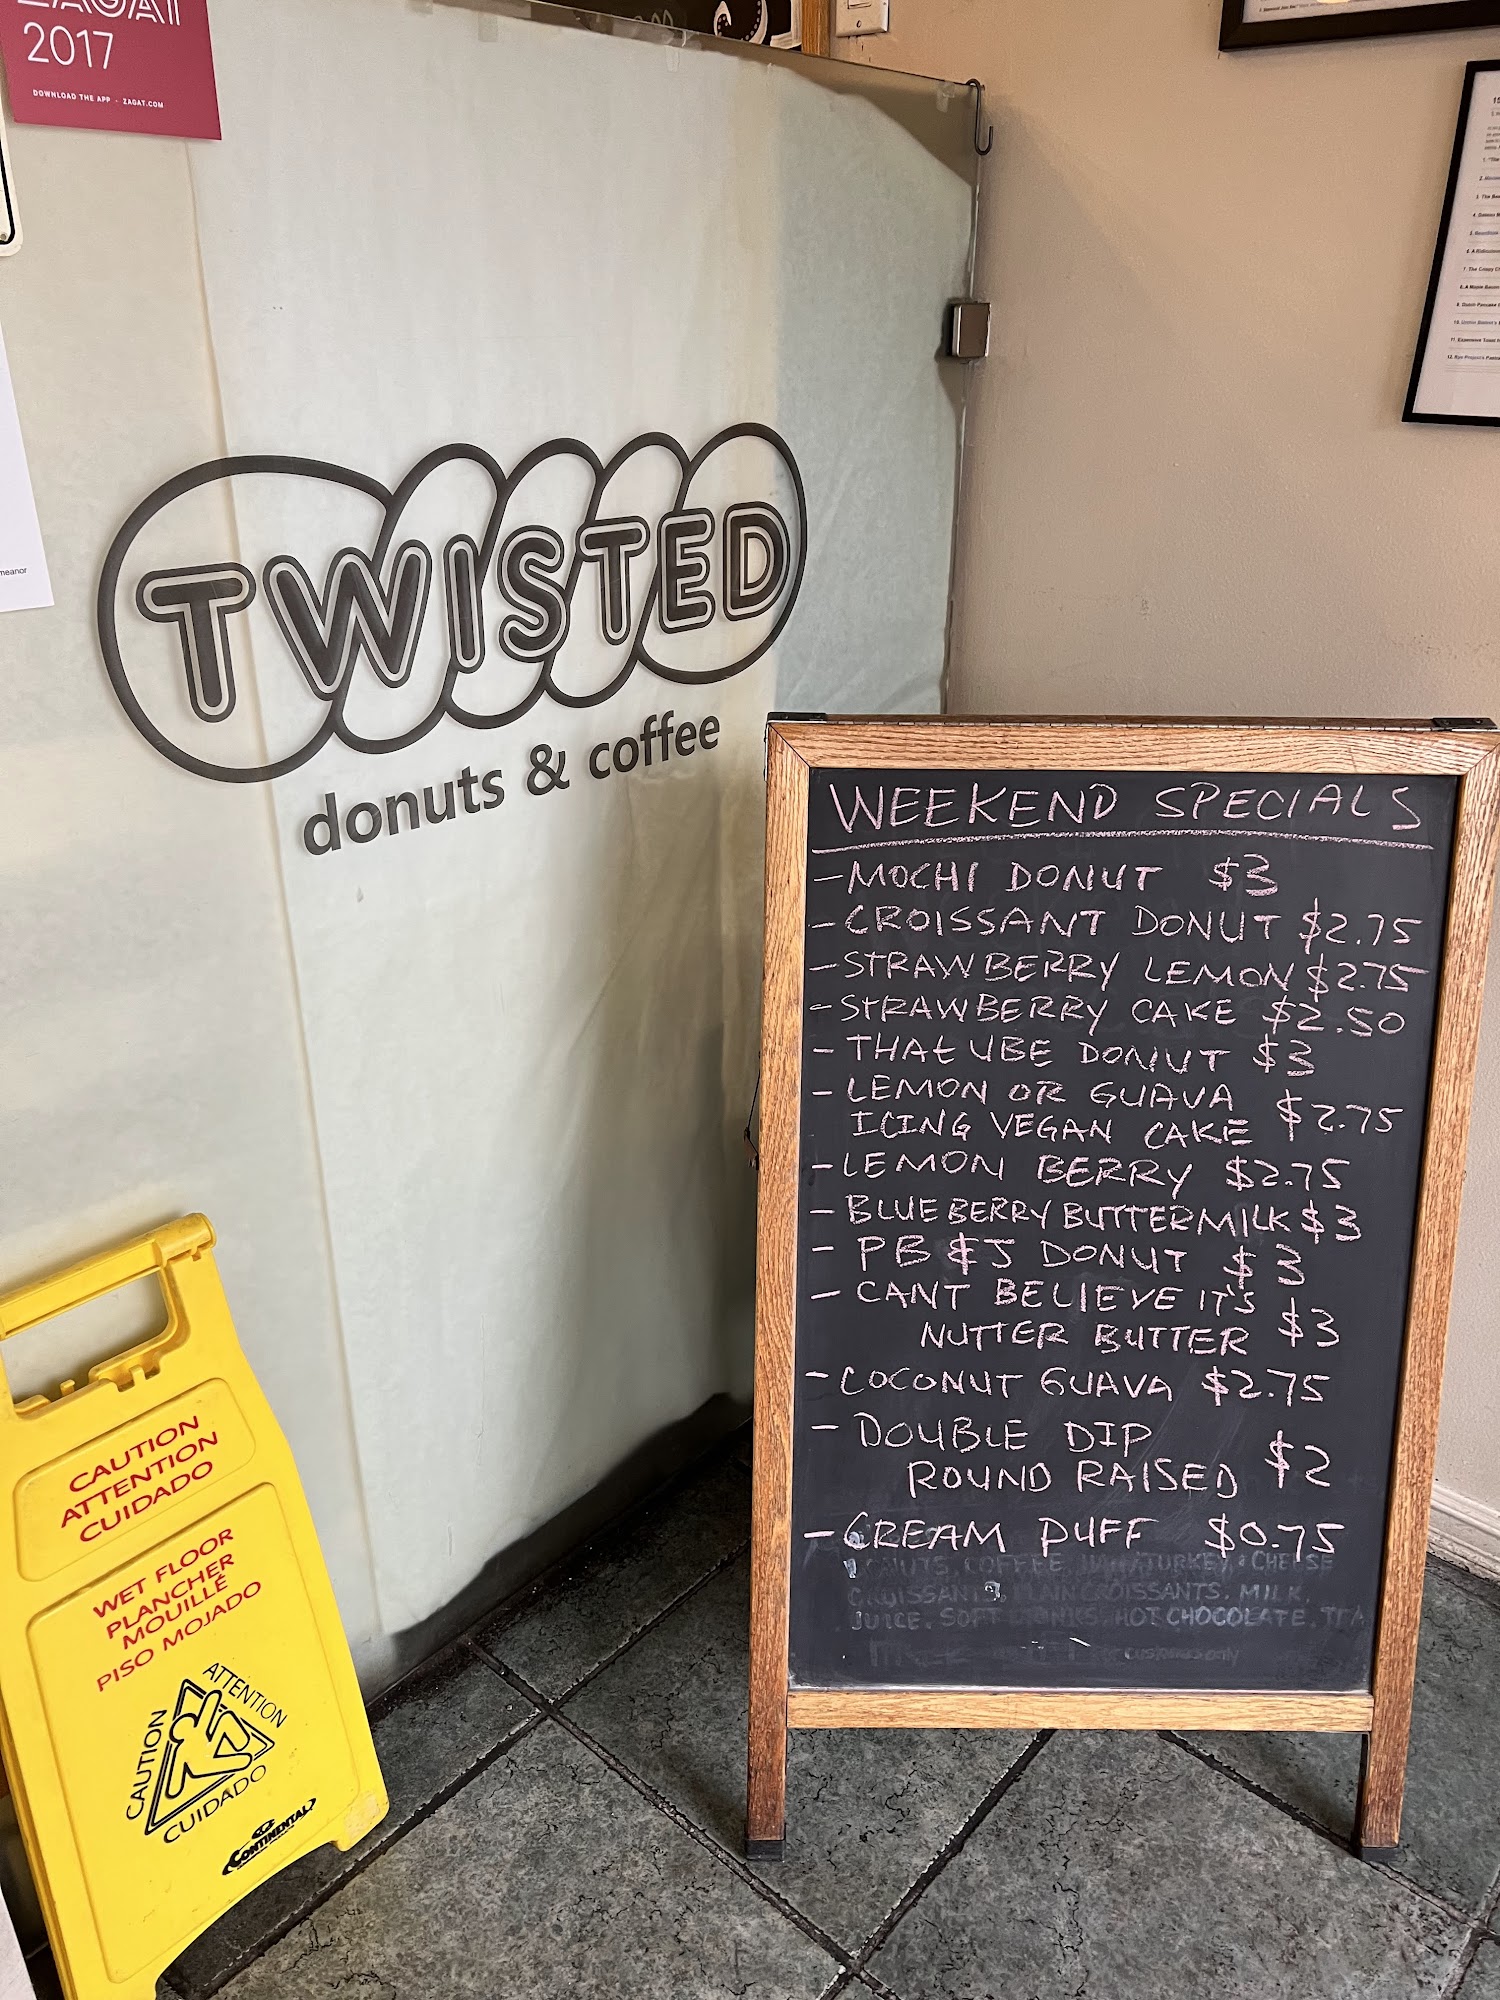 ZAGAT
2017
DOWNLOAD THE APP · ZAGAT.COM
meanor
TWISTED
donuts & coffee
WEEKEND SPECIALS
- MOCHI DONUT $3
- CROISSANT DONUT $2.75
- STRAWBERRY LEMON $2.75
- STRAWBERRY CAKE $2.50
- THAT UBE DONUT $3
- LEMON OR GUAVA
ICING VEGAN CAKE $2.75
- LEMON BERRY $2.75
- BLUEBERRY BUTTERMILK $3
- PB & J DONUT $3
- CANT BELIEVE IT'S
NUTTER BUTTER $3
- COCONUT GUAVA $2.75
- DOUBLE DIP
ROUND RAISED $2
- CREAM PUFF $0.75
COFFEE, TURKEY & CHEESE
CROISSANTS, CROISSANTS, MILK,
JUICE, SOFT DRINKS, HOT CHOCOLATE, TEA
CAUTION
ATTENTION
CUIDADO
WET FLOOR
PLANCHER
MOUILLÉ
PISO MOJADO
CAUTION
ATTENTION
CUIDADO
CONTINENTAL